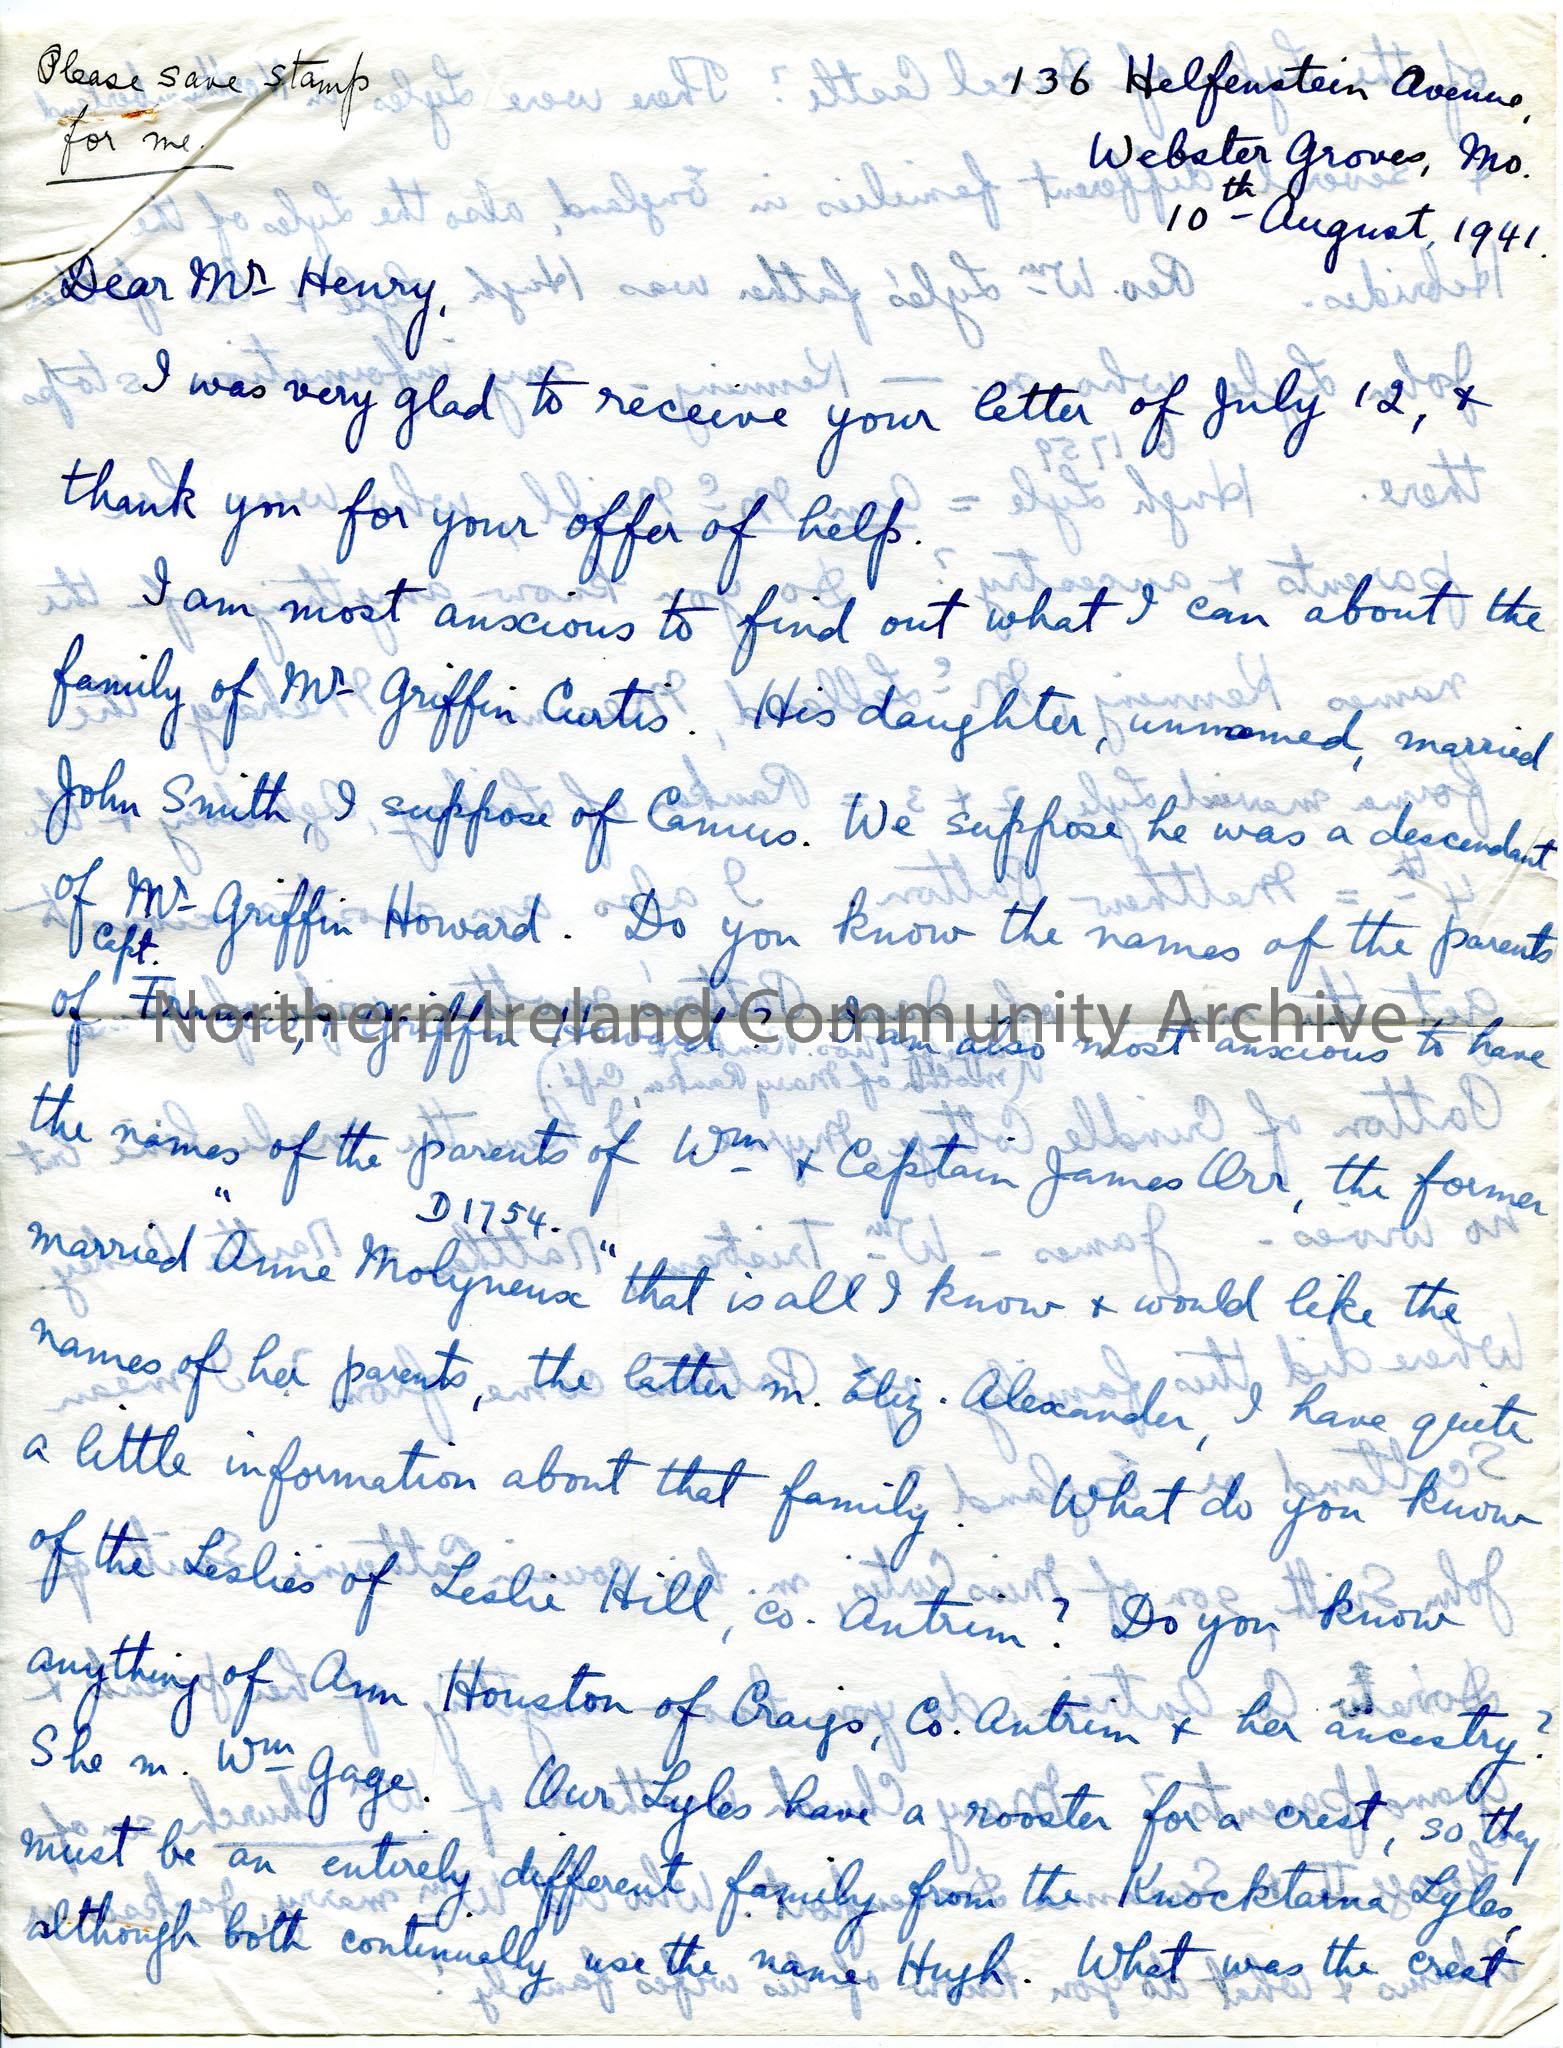 Please save stamp
for me.
136 Helfenstein Avenue,
Webster Groves, Mo.
10th August, 1941.
Dear Mr Henry,
I was very glad to receive your letter of July 12, &
thank you for your offer of help.
I am most anxious to find out what I can about the
family of Mr Griffin Curtis. His daughter, unnamed, married
John Smith, I suppose of Camus. We suppose he was a descendant
of Mr Griffin Howard. Do you know the names of the parents
of Capt. Francis, & Griffin Howard? I am also most anxious to have
Northern Ireland Community Archive
the names of the parents of Wm & Captain James Orr, the former
married "Anne Molyneux D 1754." that is all I know & would like the
names of her parents, the latter m. Eliz. Alexander, I have quite
a little information about that family. What do you know
of the Leslies of Leslie Hill, Co. Antrim? Do you know
anything of Ann Houston of Craigs, Co. Antrim & her ancestry?
She m. Wm Gage. Our Lyles have a rooster for a crest, so they
must be an entirely different family from the Knocktarna Lyles,
although both continually use the name Hugh. What was the crest